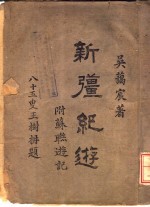 吳藹宸著
新疆紀遊
附蘇聯遊記
八十五叟王樹枏題